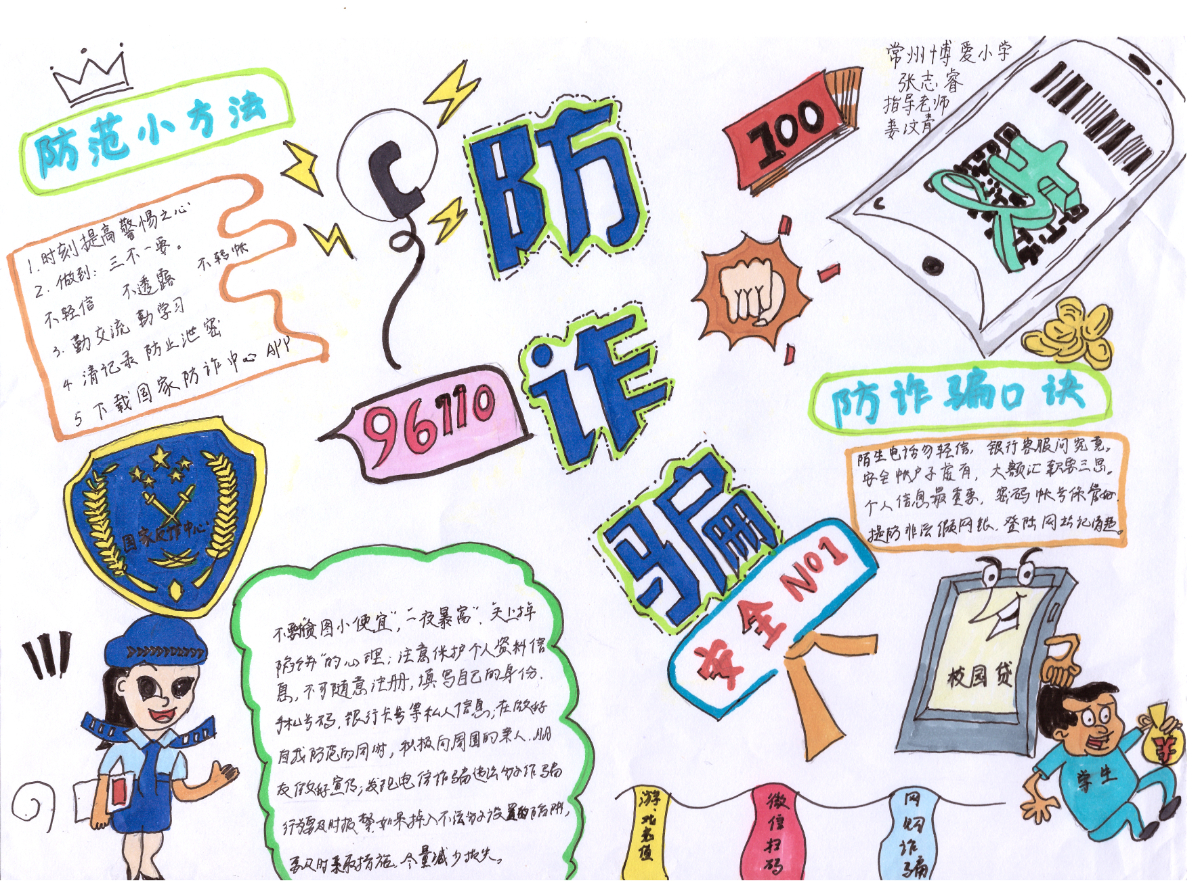 防范小方法
1.时刻提高警惕之心
2.做到：三不一要。
不轻信 不透露 不转帐
3.勤交流 勤学习
4 清记录 防止泄密
5 下载国家防诈中心APP
国家反诈中心
防
诈
骗
96110
100
安全 No1
常州博爱小学
张志睿
指导老师
姜汶青
防诈骗口诀
陌生电话勿轻信，银行客服问究竟。
安全帐户子虚有，大额汇款需三思。
个人信息最重要，密码帐号保管好
提防非法假网纸、登陆网址记清楚。
不要贪图小便宜”，“一夜暴富”、天上掉
陷饼”的心理；注意保护个人资料信
息，不可随意注册，填写自己的身份、
手机号码，银行卡号等私人信息，在做好
自我防范的同时，积极向周围的亲人、朋
友做好宣传；发现电信诈骗违法诈骗
行为要及时报警，如果掉入不法设置的陷阱，
要及时采取措施、尽量减少损失。
校园贷
学生
微信扫码
网购诈骗